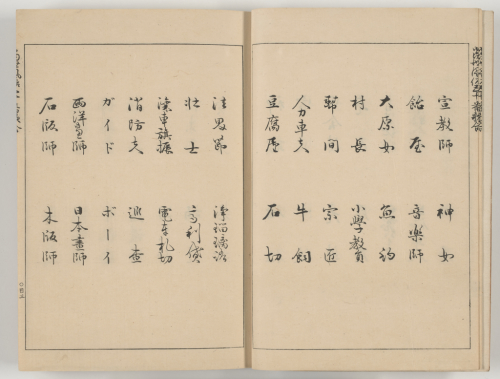 宣教師 神女
飴屋 音楽師
大原女 魚釣
村長 小學教員
幇間 宗匠
人力車夫 牛飼
豆腐屋 石切
法界節 浄瑠璃語
壮士 高利貸
汽車旗振 電車札切
消防夫 巡査
ガイド ボーイ
西洋画師 日本畫師
石版師 木版師